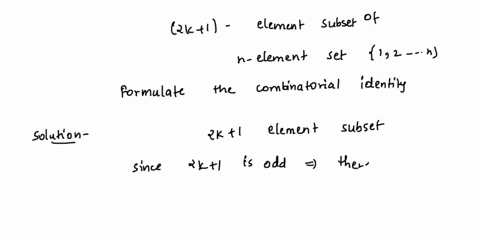 (2k+1) - element subset of
n-element set {1,2 ---- n}
Formulate the combinatorial identity
Solution- 2k+1 element subset
since 2k+1 is odd ⇒ ther